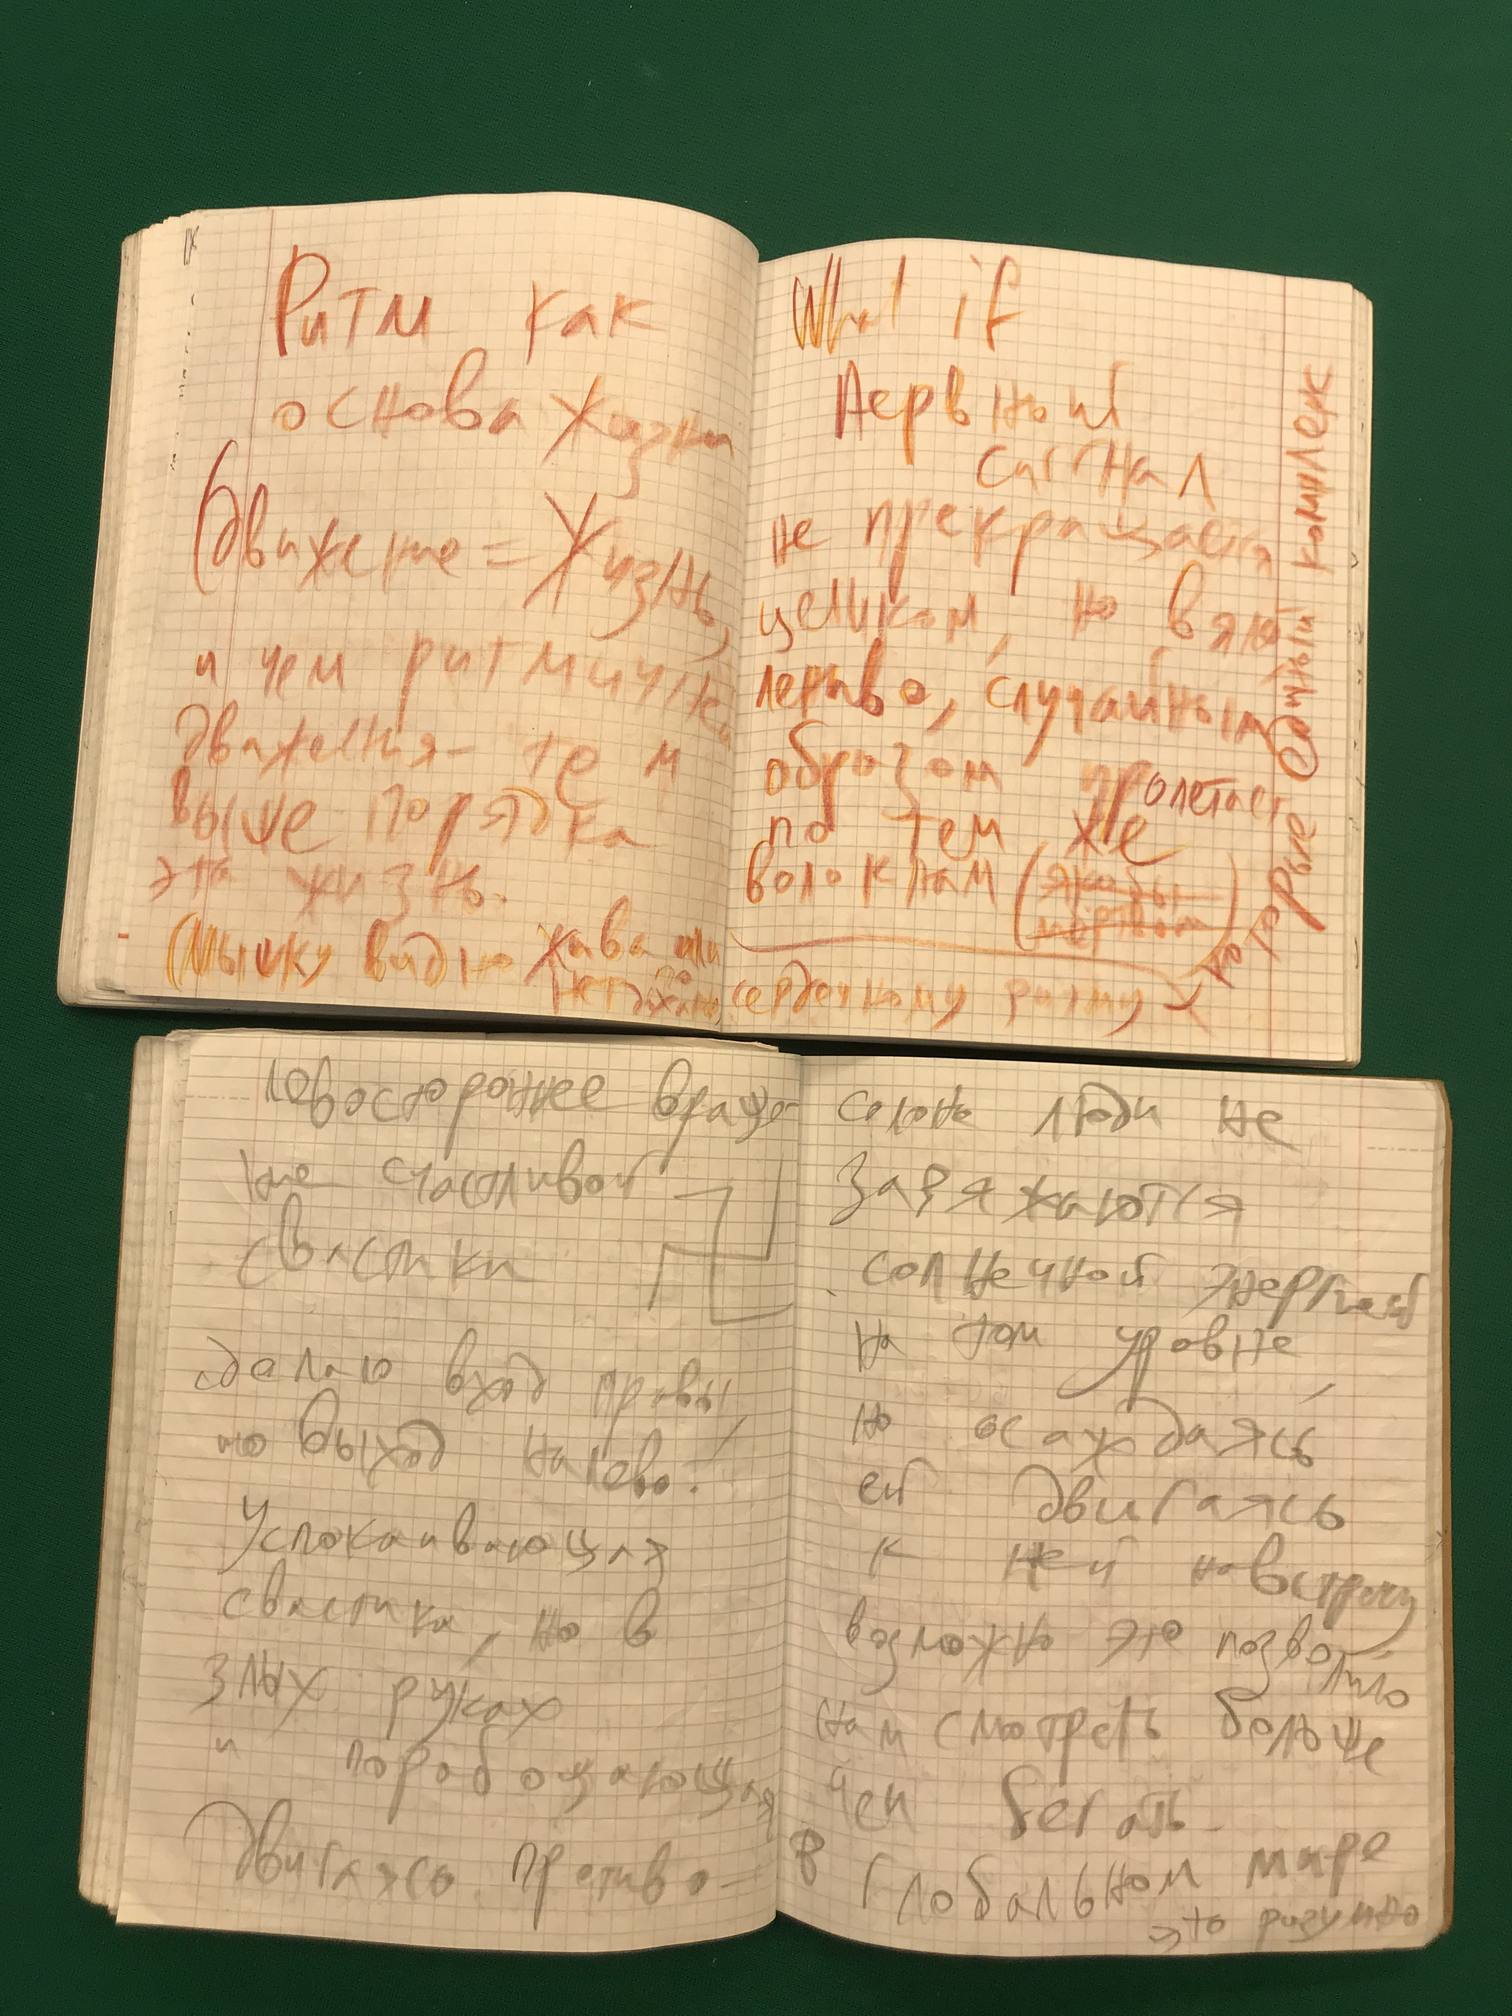 Ритм как
основа жизни
(движение = Жизнь,
и чем ритмичнее
движения - тем
выше порядка
эта жизнь.
(Мышку видно жива или
нет даже по сердечному ритму
What if
Нервный
сигнал
не прекращается
целиком, но вяло
лениво, случайным
образом пролетает
по тем же
волокнам (якобы
мёртвом)
которые единый комплекс
левостороннее враще-
ние счастливой
свастики
делаю вход правы,
но выход налево.
Успокаивающая
свастика, но в
злых руках
и порабощающая
Двигаясь противо-
солонь люди не
заряжаются
солнечной энергией
на том уровне,
но осаждаясь
ей двигаясь
к ней навстречу
возможно это позволило
нам смотреть больше
чем бегать.
В глобальном мире
это разумно